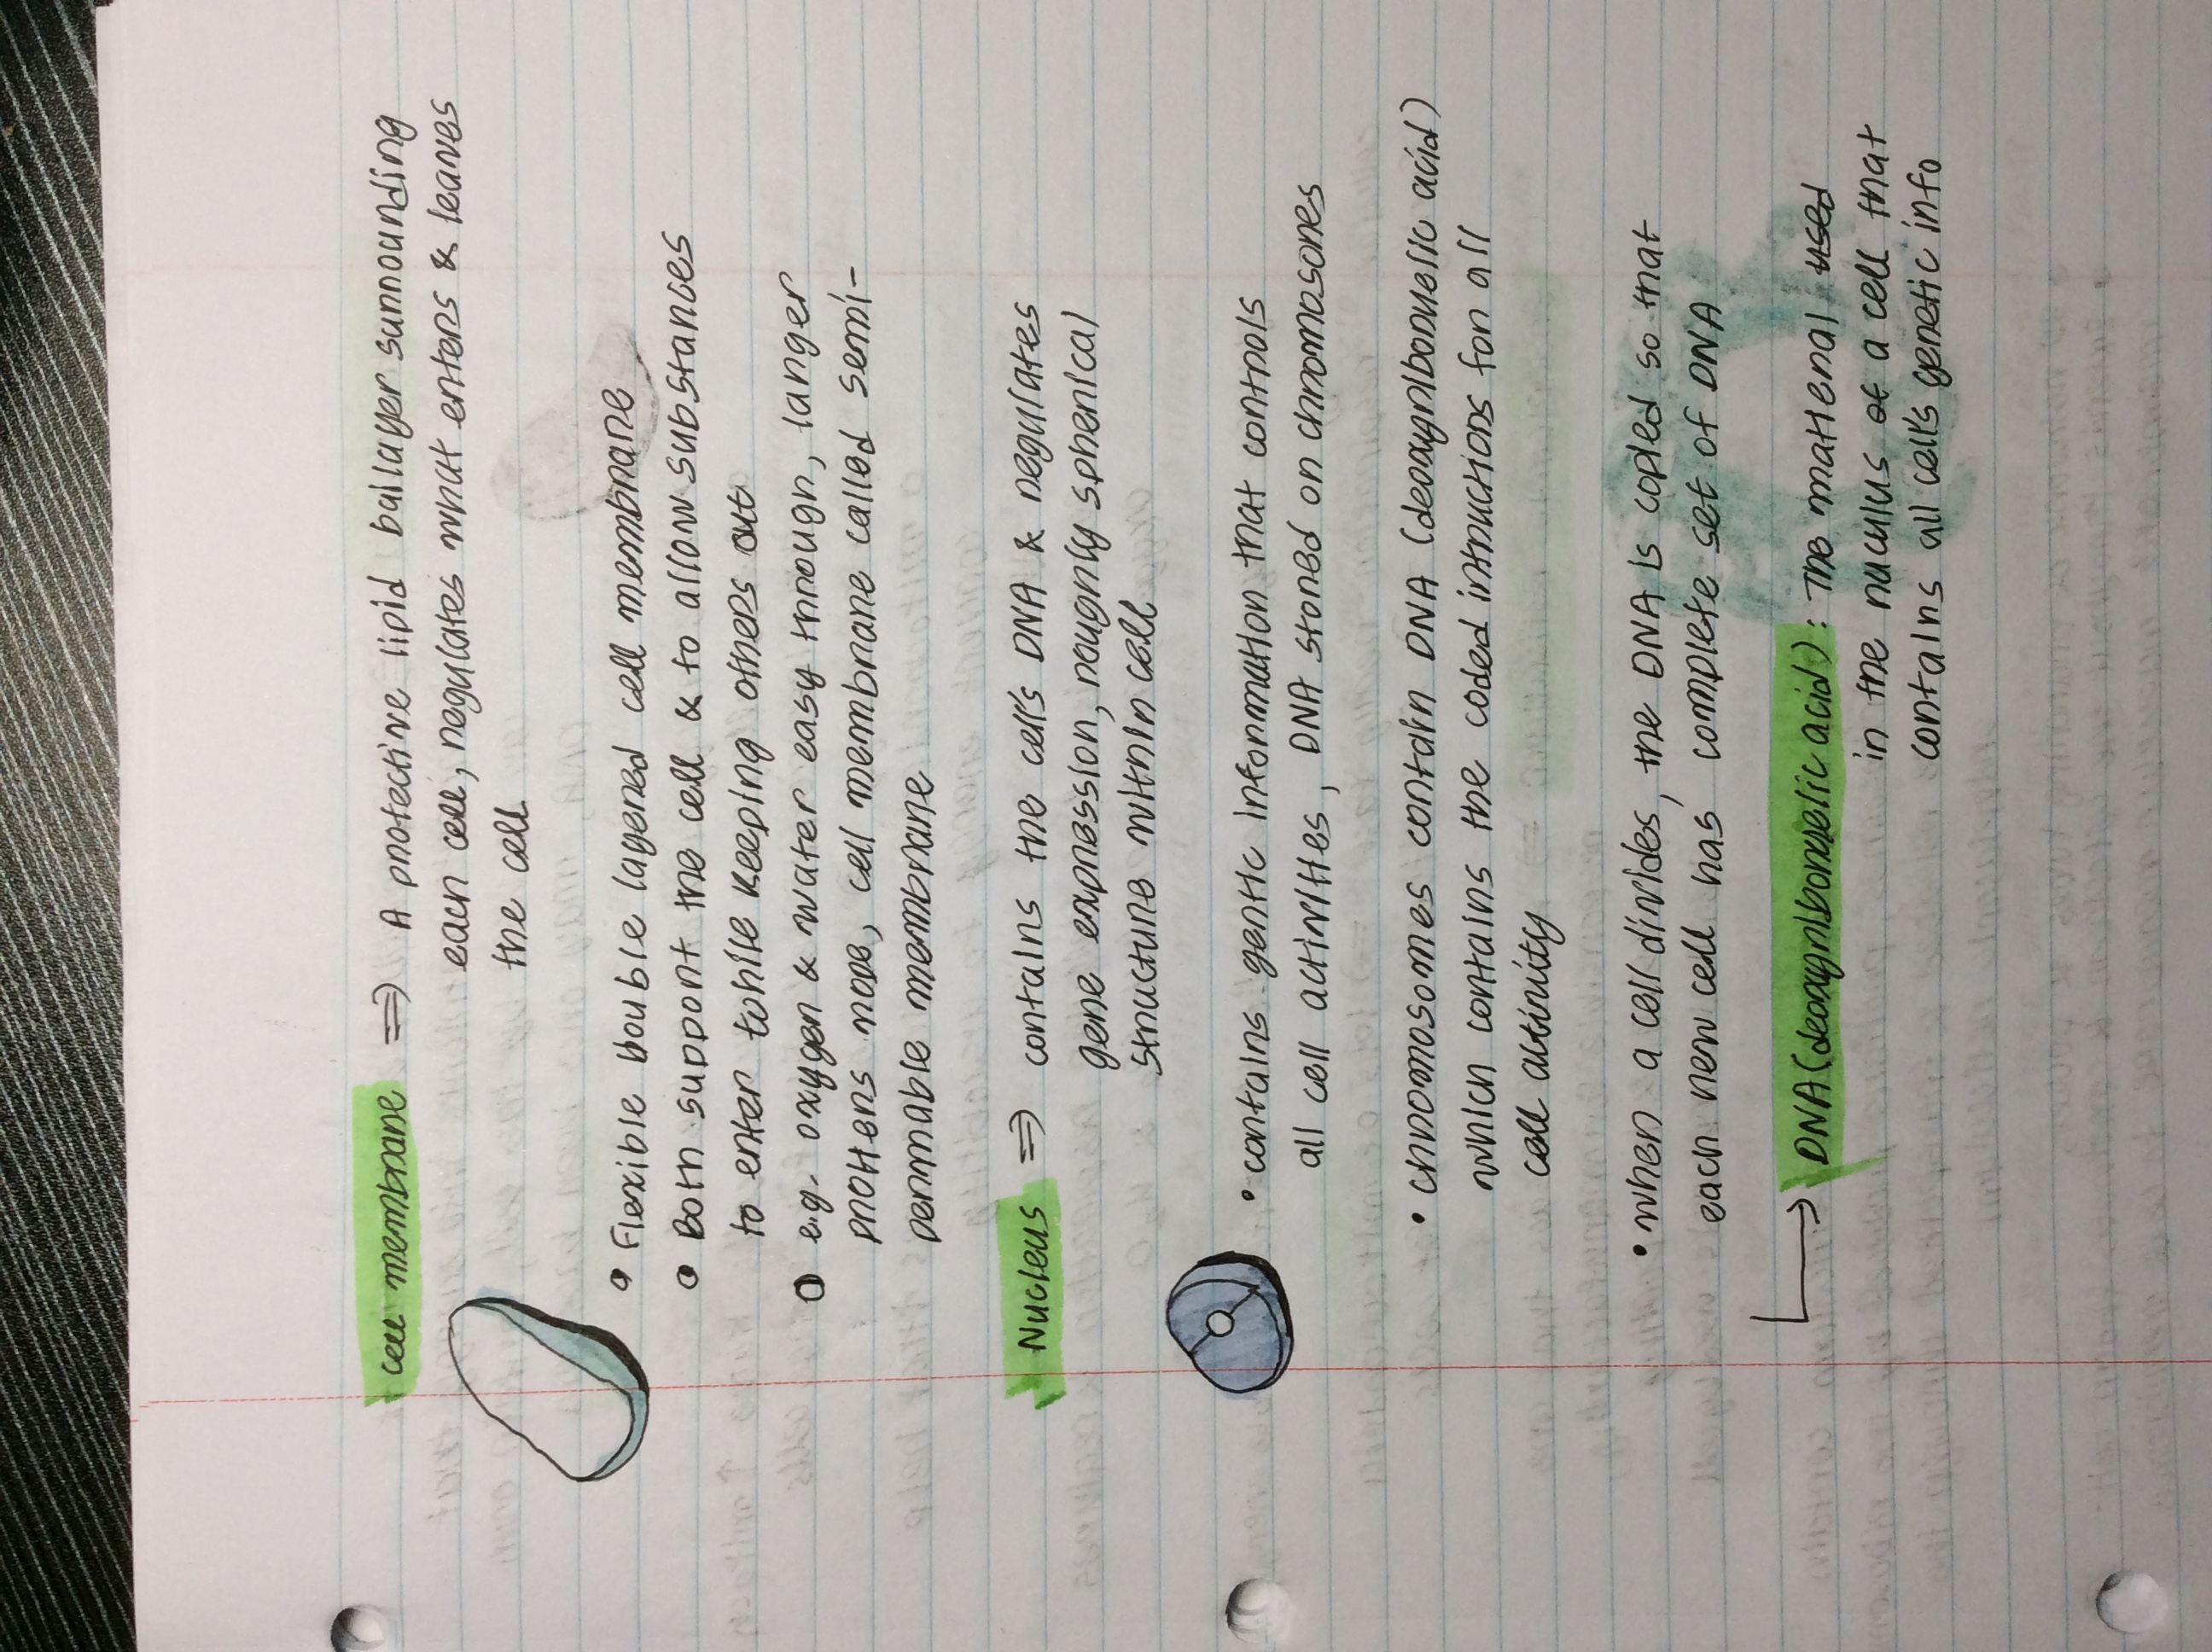 cell membrane ⇒ A protective lipid bailayer surrounding
each cell, regulates what enters & leaves
the cell
• Flexible bouble layered cell membrane
• Both support the cell & to allow substances
to enter while keeping others out
• e.g. oxygen & water easy through, larger
protiens nope, cell membrane called semi-
permable membrane
Nucleus ⇒ contains the cell's DNA & regulates
gene expression, roughly spherical
structure within cell
• contains gentic information that controls
all cell activites, DNA stored on chromasones
• chromosomes contain DNA (deoxyribonuelic acid)
which contains the coded intructions for all
cell actinity
• when a cell divides, the DNA is copied so that
each new cell has complete set of DNA
↳ DNA (deoxyribonuelic acid): The matieral used
in the nuculus of a cell that
contains all cell's genetic info